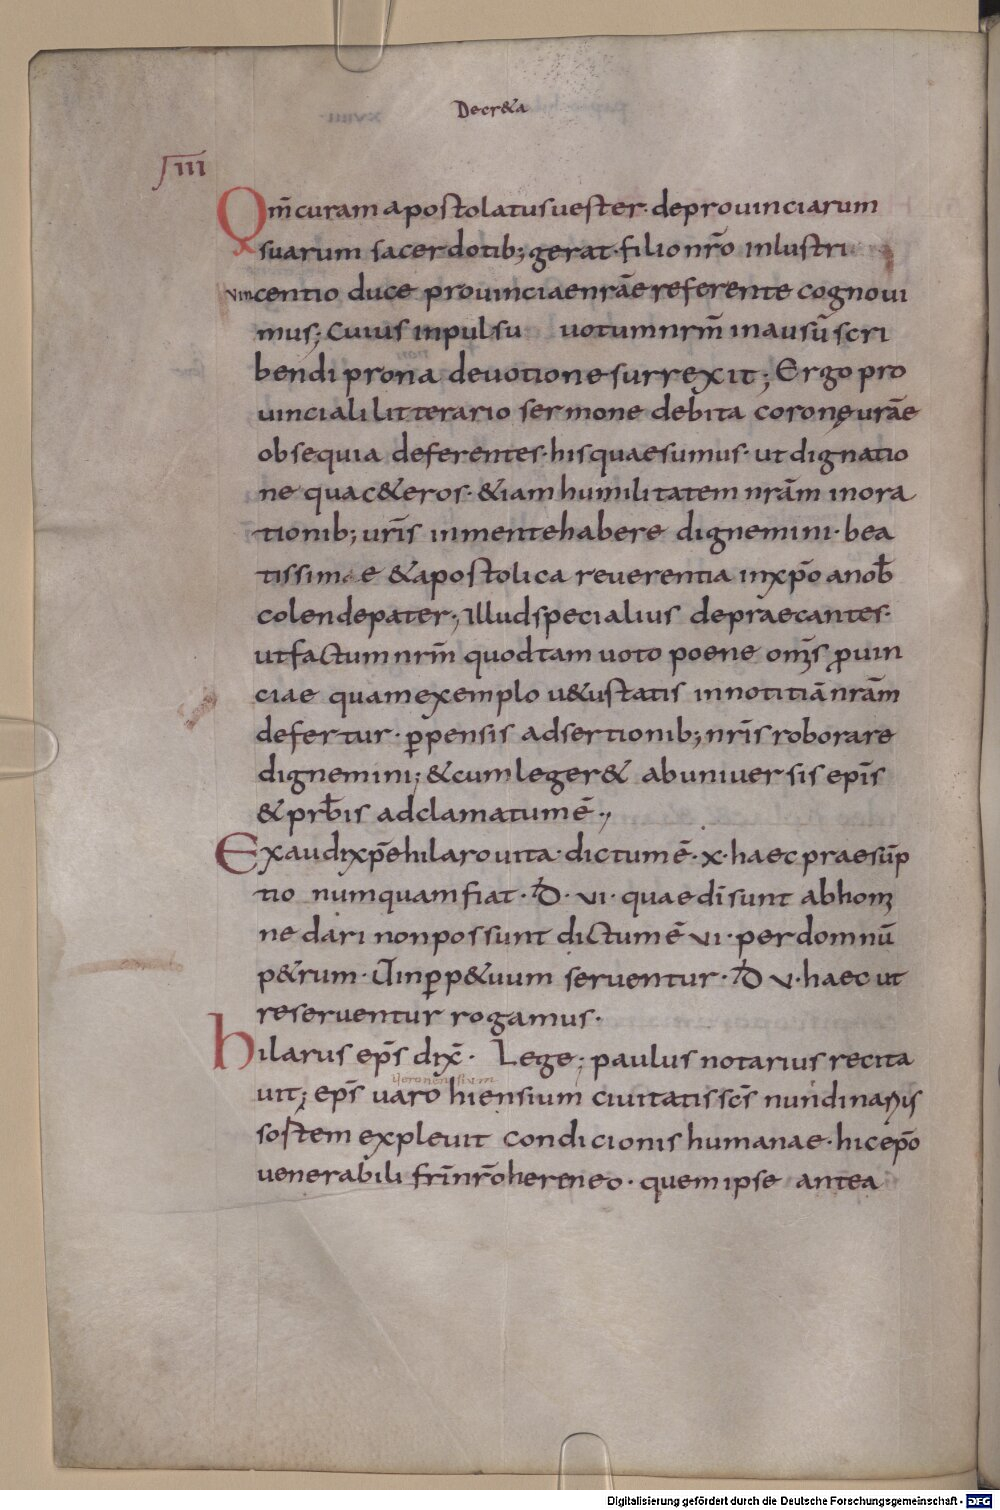 Decr&a
IIII
Qm̄ curam apostolatus uester· de prouinciarum
suarum sacerdotib; gerat· filio nr̄o inlustri
vincentio duce prouinciae nrāe referente cognoui
mus; Cuius inpulsu uotum nrm̄ in ausū scri
bendi prona deuotione surrexit; Ergo pro
uinciali litterario sermone debita coronę urāe
obsequia deferentes· his quaesumus· ut dignatio
ne qua c&eros· &iam humilitatem nrām in ora
tionib; urīs in mente habere dignemini· bea
tissimae &apostolica reuerentia in xp̄o a nob̄
colende pater; Illud specialius depraecantes·
ut factum nrm̄ quod tam uoto poene om̄s ꝓuin
ciae quam exemplo u&ustatis in notitiā nrām
defertur· ꝑpensis adsertionib; nrīs roborare
dignemini; &cum leger& ab uniuersis ep̄is
&prb̄is adclamatum ē·,
Exaudi xp̄e hilaro uita· dictum ē· x· haec praesūp
tio numquam fiat· D̄· vi· quae dī sunt ab hom̄
ne dari non possunt dictum ē vi· per domnū
p&rum· Ut in ꝑp&uum seruentur· D̄ v· haec ut
reseruentur rogamus·
hilarus ep̄s dix̄· Lege; paulus notarius recita
uit; ep̄s uaro hiensium ciuitatis sc̄s nundinarius
yoronensium
sostem expleuit condicionis humanae· hic ep̄o
uenerabili fr̄i nr̄o hereneo· quem ipse antea
Digitalisierung gefördert durch die Deutsche Forschungsgemeinschaft - DFG